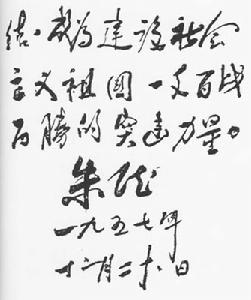 结，成为建设社会
主义祖国一支百战
百胜的突击力量。
朱德
一九五七年
十二月二十日